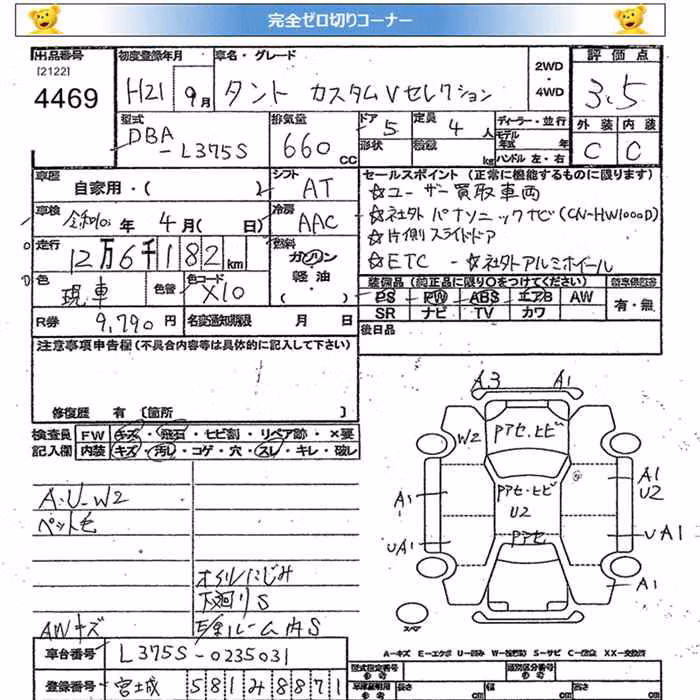 完全ゼロ切りコーナー
出品番号
[2122]
4469
初度登録年月
H21 9月
車名・グレード
タント カスタムVセレクション
2WD
・
4WD
評価点
3.5
外装 内装
C C
型式
DBA
-L375S
排気量
660 CC
ドア 5
定員 4 人
形状
積載 kg
ディーラー・並行
モデル年式 年
ハンドル 左・右
車歴
自家用・( )
シフト
AT
車検
令和 年 4月( 日)
冷房
AAC
走行
12万6千182 km
燃料
ガソリン
軽油
( )
色
現車
色替
色コード
X10
R券 9,790 円
名変通知期限 月 日
セールスポイント (正常に機能するものに限ります)
☆ユーザー買取車両
☆社外パナソニックナビ(CN-HW1000D)
☆片側スライドドア
☆ETC -☆社外アルミホイール
装備品 (純正品に限り○をつけてください)
PS PW ABS エアB AW
SR ナビ TV カワ
新車保証書
有・無
後日品
注意事項申告欄 (不具合内容等は具体的に記入して下さい)
修復歴 有 [箇所 ]
検査員
記入欄
FW キズ・飛石・ヒビ割・リペア跡・×要
内装 キズ・汚し・コゲ・穴・スレ・キレ・破レ
A・U-W2
ペット毛
AWキズ
オイルにじみ
下廻りS
E/gルーム内S
A3 A1
W2
Pアセ・ヒビ
Pアセ・ヒビ
U2
Pアセ
A1
UA1
A1
U2
UA1
A1
スペア
A-キズ E-エクボ U-凹み W-板金跡 S-サビ C-腐食 XX-交換済
車台番号 L375S-0235031
登録番号 宮城 581み8871
型式指定番号
類別区分番号
長さ cm
幅 cm
高さ cm